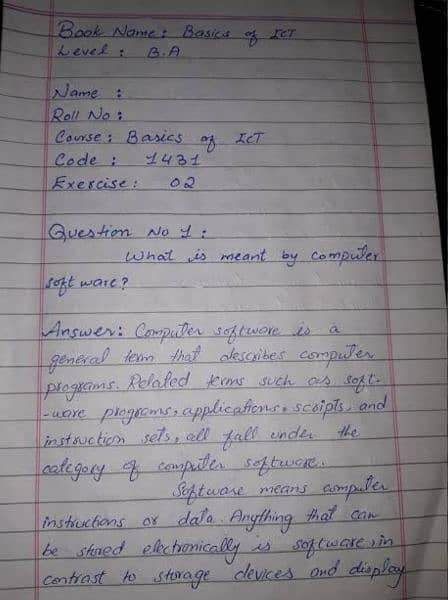 Book Name: Basics of ICT
Level : B.A
Name :
Roll No :
Course : Basics of ICT
Code : 1431
Exercise : 02
Question No 1 :
What is meant by computer
software?
Answer: Computer software is a
general term that describes computer
programs. Related terms such as soft-
-ware programs, applications, scripts, and
instruction sets, all fall under the
category of computer software.
Software means computer
instructions or data. Anything that can
be stored electronically is software, in
contrast to storage devices and display